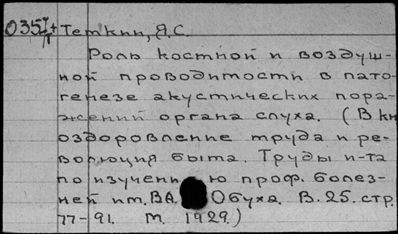 035I+ Темкин, Я.С.
Роль костной и воздуш-
ной проводимости в пато-
генезе акустических пора-
жений органа слуха. (В кн
оздоровление труда и ре-
волюция быта. Труды и-та
по изучению проф. болез-
ней им. ВА. Обуха. В. 25. стр.
77-91. М. 1929.)